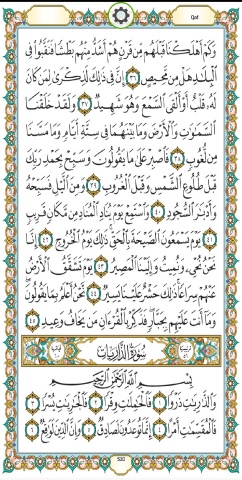 Qaf
وَكَمْ أَهْلَكْنَا قَبْلَهُم مِّن قَرْنٍ هُمْ أَشَدُّ مِنْهُم بَطْشًا فَنَقَّبُوا۟ فِى
ٱلْبِلَـٰدِ هَلْ مِن مَّحِيصٍ ٣٦ إِنَّ فِى ذَٰلِكَ لَذِكْرَىٰ لِمَن كَانَ
لَهُۥ قَلْبٌ أَوْ أَلْقَى ٱلسَّمْعَ وَهُوَ شَهِيدٌ ٣٧ وَلَقَدْ خَلَقْنَا
ٱلسَّمَـٰوَٰتِ وَٱلْأَرْضَ وَمَا بَيْنَهُمَا فِى سِتَّةِ أَيَّامٍ وَمَا مَسَّنَا
مِن لُّغُوبٍ ٣٨ فَٱصْبِرْ عَلَىٰ مَا يَقُولُونَ وَسَبِّحْ بِحَمْدِ رَبِّكَ
قَبْلَ طُلُوعِ ٱلشَّمْسِ وَقَبْلَ ٱلْغُرُوبِ ٣٩ وَمِنَ ٱلَّيْلِ فَسَبِّحْهُ
وَأَدْبَـٰرَ ٱلسُّجُودِ ٤٠ وَٱسْتَمِعْ يَوْمَ يُنَادِ ٱلْمُنَادِ مِن مَّكَانٍ قَرِيبٍ
٤١ يَوْمَ يَسْمَعُونَ ٱلصَّيْحَةَ بِٱلْحَقِّ ذَٰلِكَ يَوْمُ ٱلْخُرُوجِ ٤٢ إِنَّا
نَحْنُ نُحْىِۦ وَنُمِيتُ وَإِلَيْنَا ٱلْمَصِيرُ ٤٣ يَوْمَ تَشَقَّقُ ٱلْأَرْضُ
عَنْهُمْ سِرَاعًا ذَٰلِكَ حَشْرٌ عَلَيْنَا يَسِيرٌ ٤٤ نَّحْنُ أَعْلَمُ بِمَا يَقُولُونَ
وَمَآ أَنتَ عَلَيْهِم بِجَبَّارٍ فَذَكِّرْ بِٱلْقُرْءَانِ مَن يَخَافُ وَعِيدِ ٤٥
سُورَةُ الذَّارِيَاتِ
بِسْمِ ٱللَّهِ ٱلرَّحْمَـٰنِ ٱلرَّحِيمِ
وَٱلذَّٰرِيَـٰتِ ذَرْوًا ١ فَٱلْحَـٰمِلَـٰتِ وِقْرًا ٢ فَٱلْجَـٰرِيَـٰتِ يُسْرًا ٣
فَٱلْمُقَسِّمَـٰتِ أَمْرًا ٤ إِنَّمَا تُوعَدُونَ لَصَادِقٌ ٥ وَإِنَّ ٱلدِّينَ لَوَٰقِعٌ ٦
520